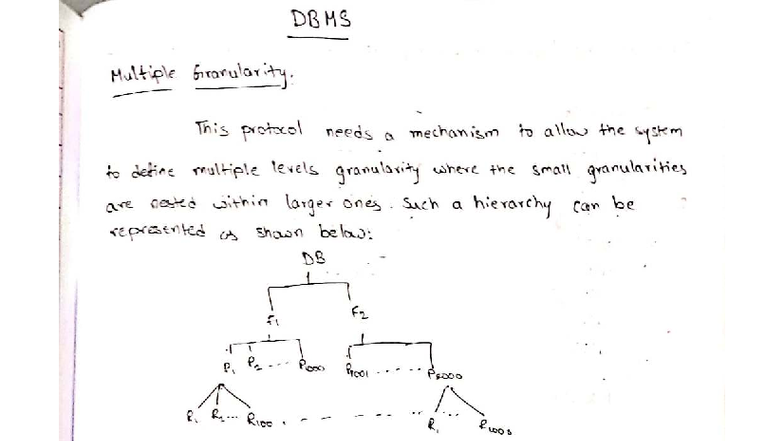 DBMS
Multiple Granularity.
This protocol needs a mechanism to allow the system
to define multiple levels granularity where the small granularities
are nested within larger ones. Such a hierarchy can be
represented as shown below:
DB
F1 F2
P1 P2 .... P1000 P1001 ..... P2000
R1 R2... R100 . - - - - - - .. R1 ... R1000